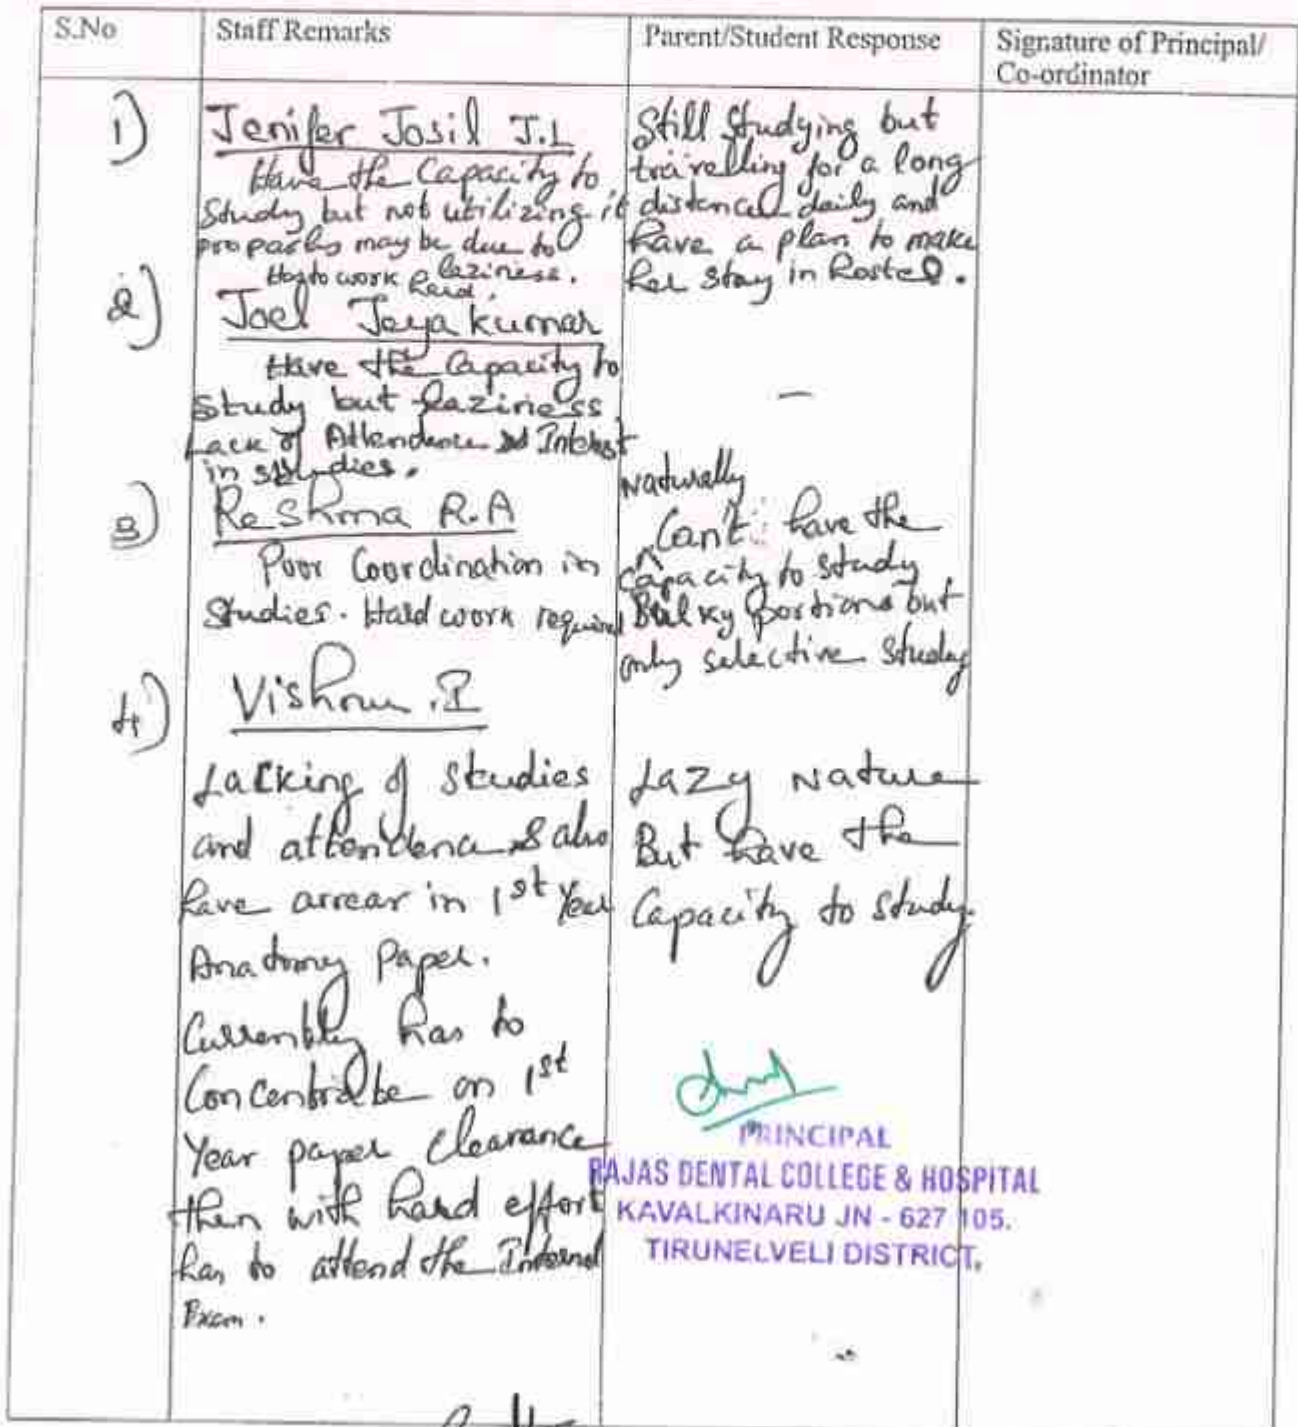 S.No
Staff Remarks
Parent/Student Response
Signature of Principal/
Co-ordinator
1)
Jenifer Josil J.L
Have the Capacity to
Study but not utilizing it
may be due to
laziness.
Has to work hard.
Still Studying but
travelling for a long
distance daily and
have a plan to make
her stay in hostel.
2)
Joel Jeya kumar
Have the Capacity to
Study but laziness.
Lack of Attendance Interest
in studies.
—
3)
Reshma R.A
Poor Coordination in
Studies. Hard work required
Naturally
Can't have the
Capacity to study
Bulky portions but
only selective Study
4)
Vishnu .I
Lacking of studies
and attendance & also
have arrear in 1st Year
Anatomy Paper.
Currently has to
Concentrate on 1st
Year paper clearance
then with hard effort
has to attend the Internal
Exam.
Lazy Nature
But have the
Capacity to study.
PRINCIPAL
RAJAS DENTAL COLLEGE & HOSPITAL
KAVALKINARU JN - 627 105.
TIRUNELVELI DISTRICT.